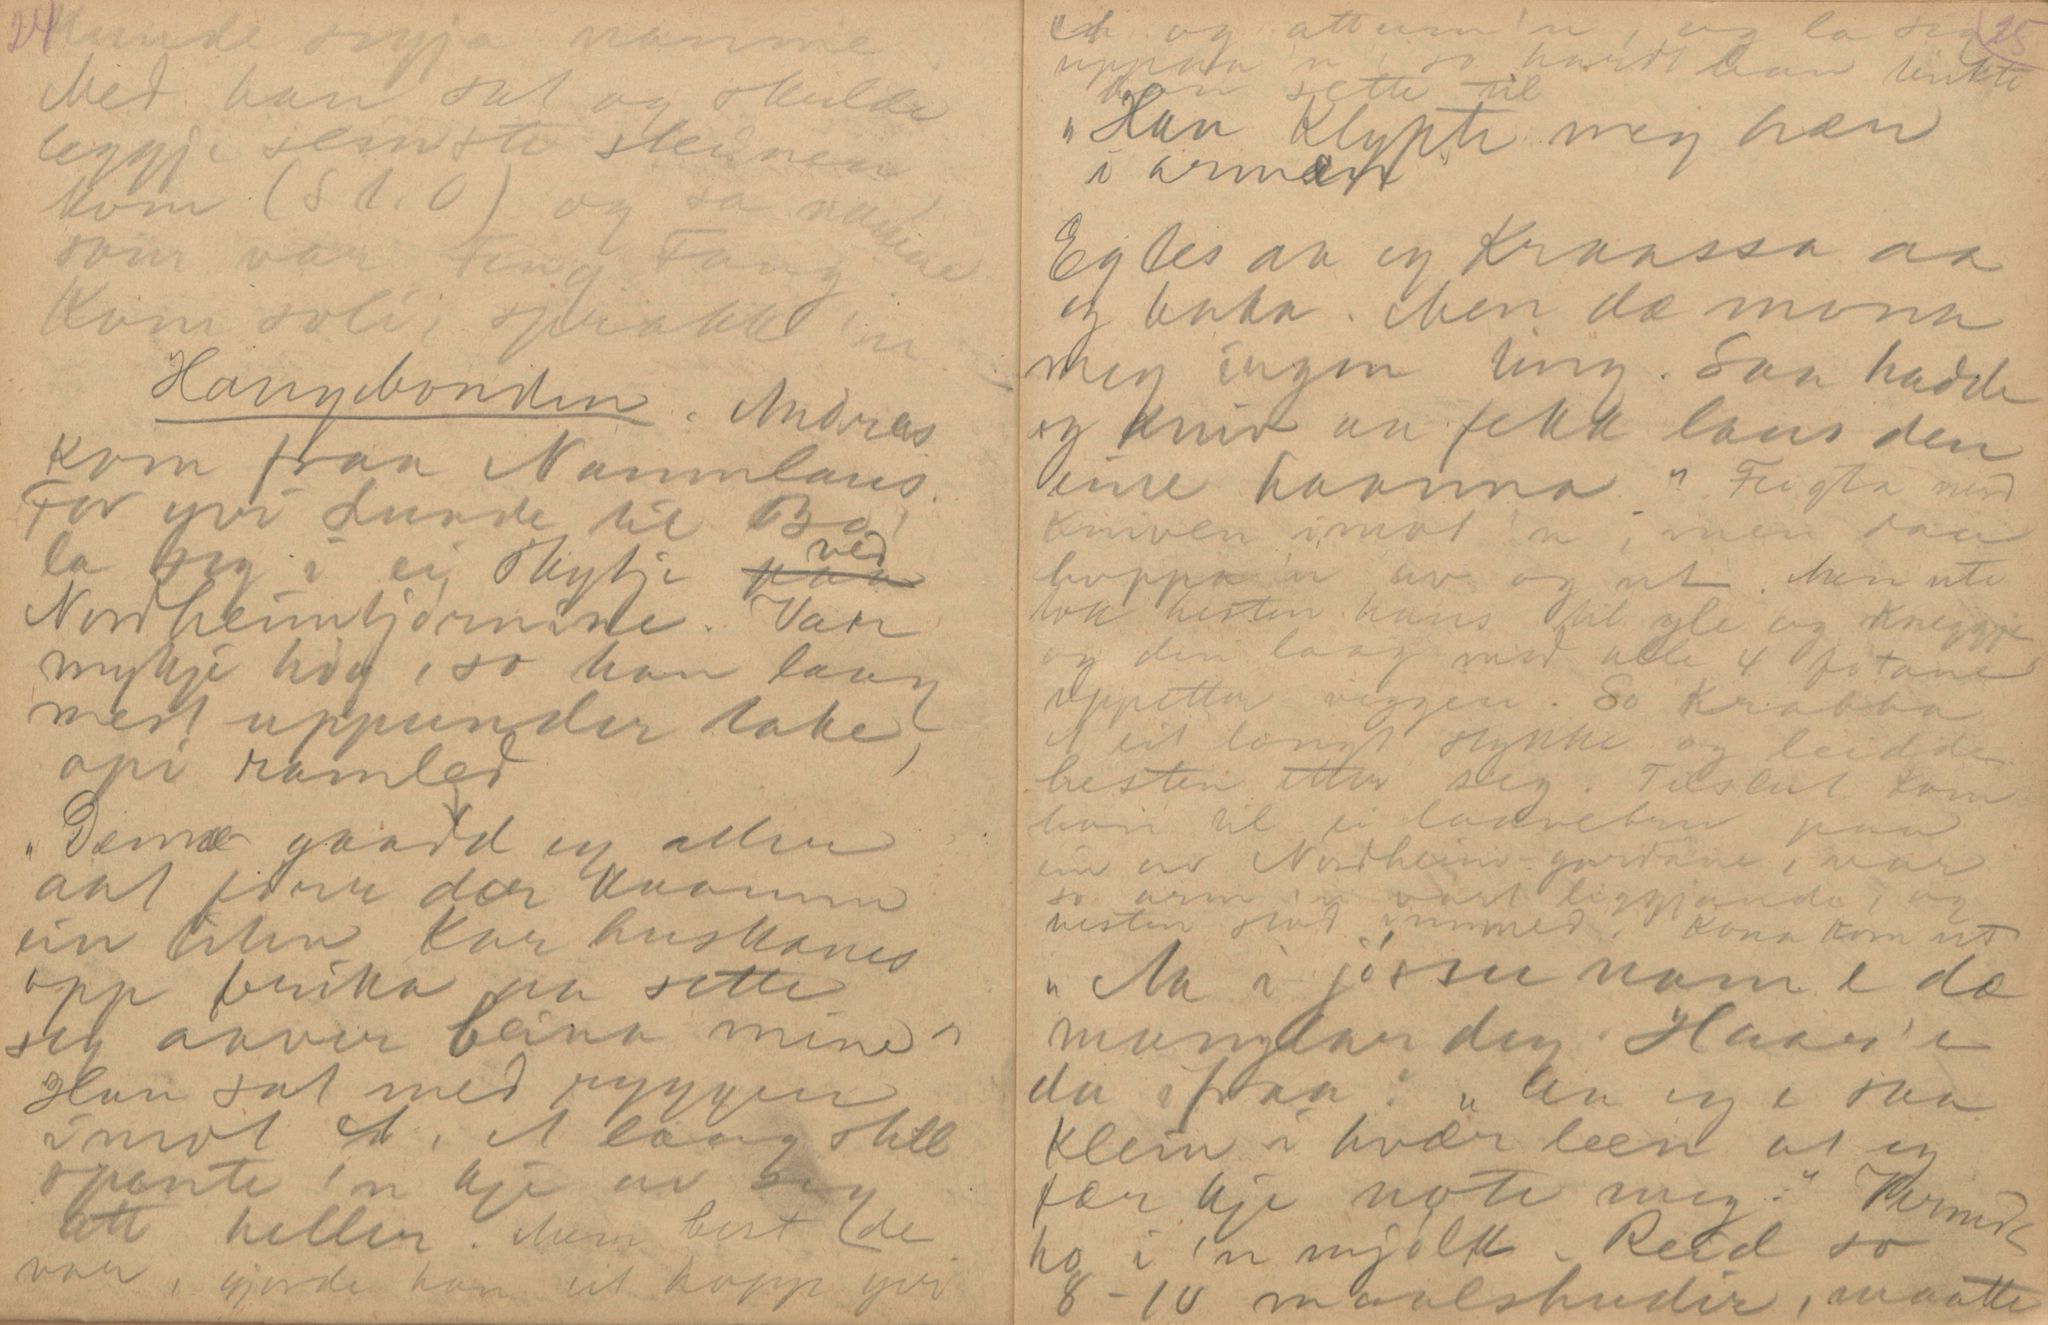 24
Kunde segja namne
Med han sat og skulde
leggje seinste steinen
kom (St. O) og sa
som var Fing Fang
Kom soli, sprakk 'n
Haugebonden. Andreas
kom fraa Naumlaus.
For yvi Lunde til Bø,
la seg i ei skykje ved
Nordheimtjørnine. Var
mykje høy, so han laag
mest uppunder take,
opi ramled
"Denna gaard eg aller
aat förr der kaamm
ein liten kar huskanes
opp frika aa sette
seg aaver beina mine"
Han sat med ryggen
imot A, A laag still
òpente 'n kje av seg
att heller. Men best de
var, gjorde han eit hopp yvi
25
A og attum 'n, og la seg
uppaa 'n, so hardt han
han sette til
"Han klypte meg hæn
i armen"
Eg les aa eg kraassa aa
eg baka. Men dæ mona
meg ingen ting. Saa hadde
eg kniv aa fekk laus den
eine haanna" Feigta med
kniven imot 'n, men daa
hoppa 'n av og ut. Men ute
tok hesten hans til yle og kneggje
og den laag med alle 4 føtane
uppetter veggen. So krabba
A eit langt stykke og leidde
hesten etter seg. Tilslut kom
han til ei laavebru paa
ein av Nordheim-gardane, var
so arm 'n vart liggjande, og
hesten stod immed. Kona kom ut
"Aa i jössu namn e dæ
manglar deg. Haar'e
du ifraa?" "Aa eg e saa
klein i hvær leen at eg
fær kje röte meg." Vermde
ho i 'n mjølk. Reid so
8-10 maalshudir, maatte